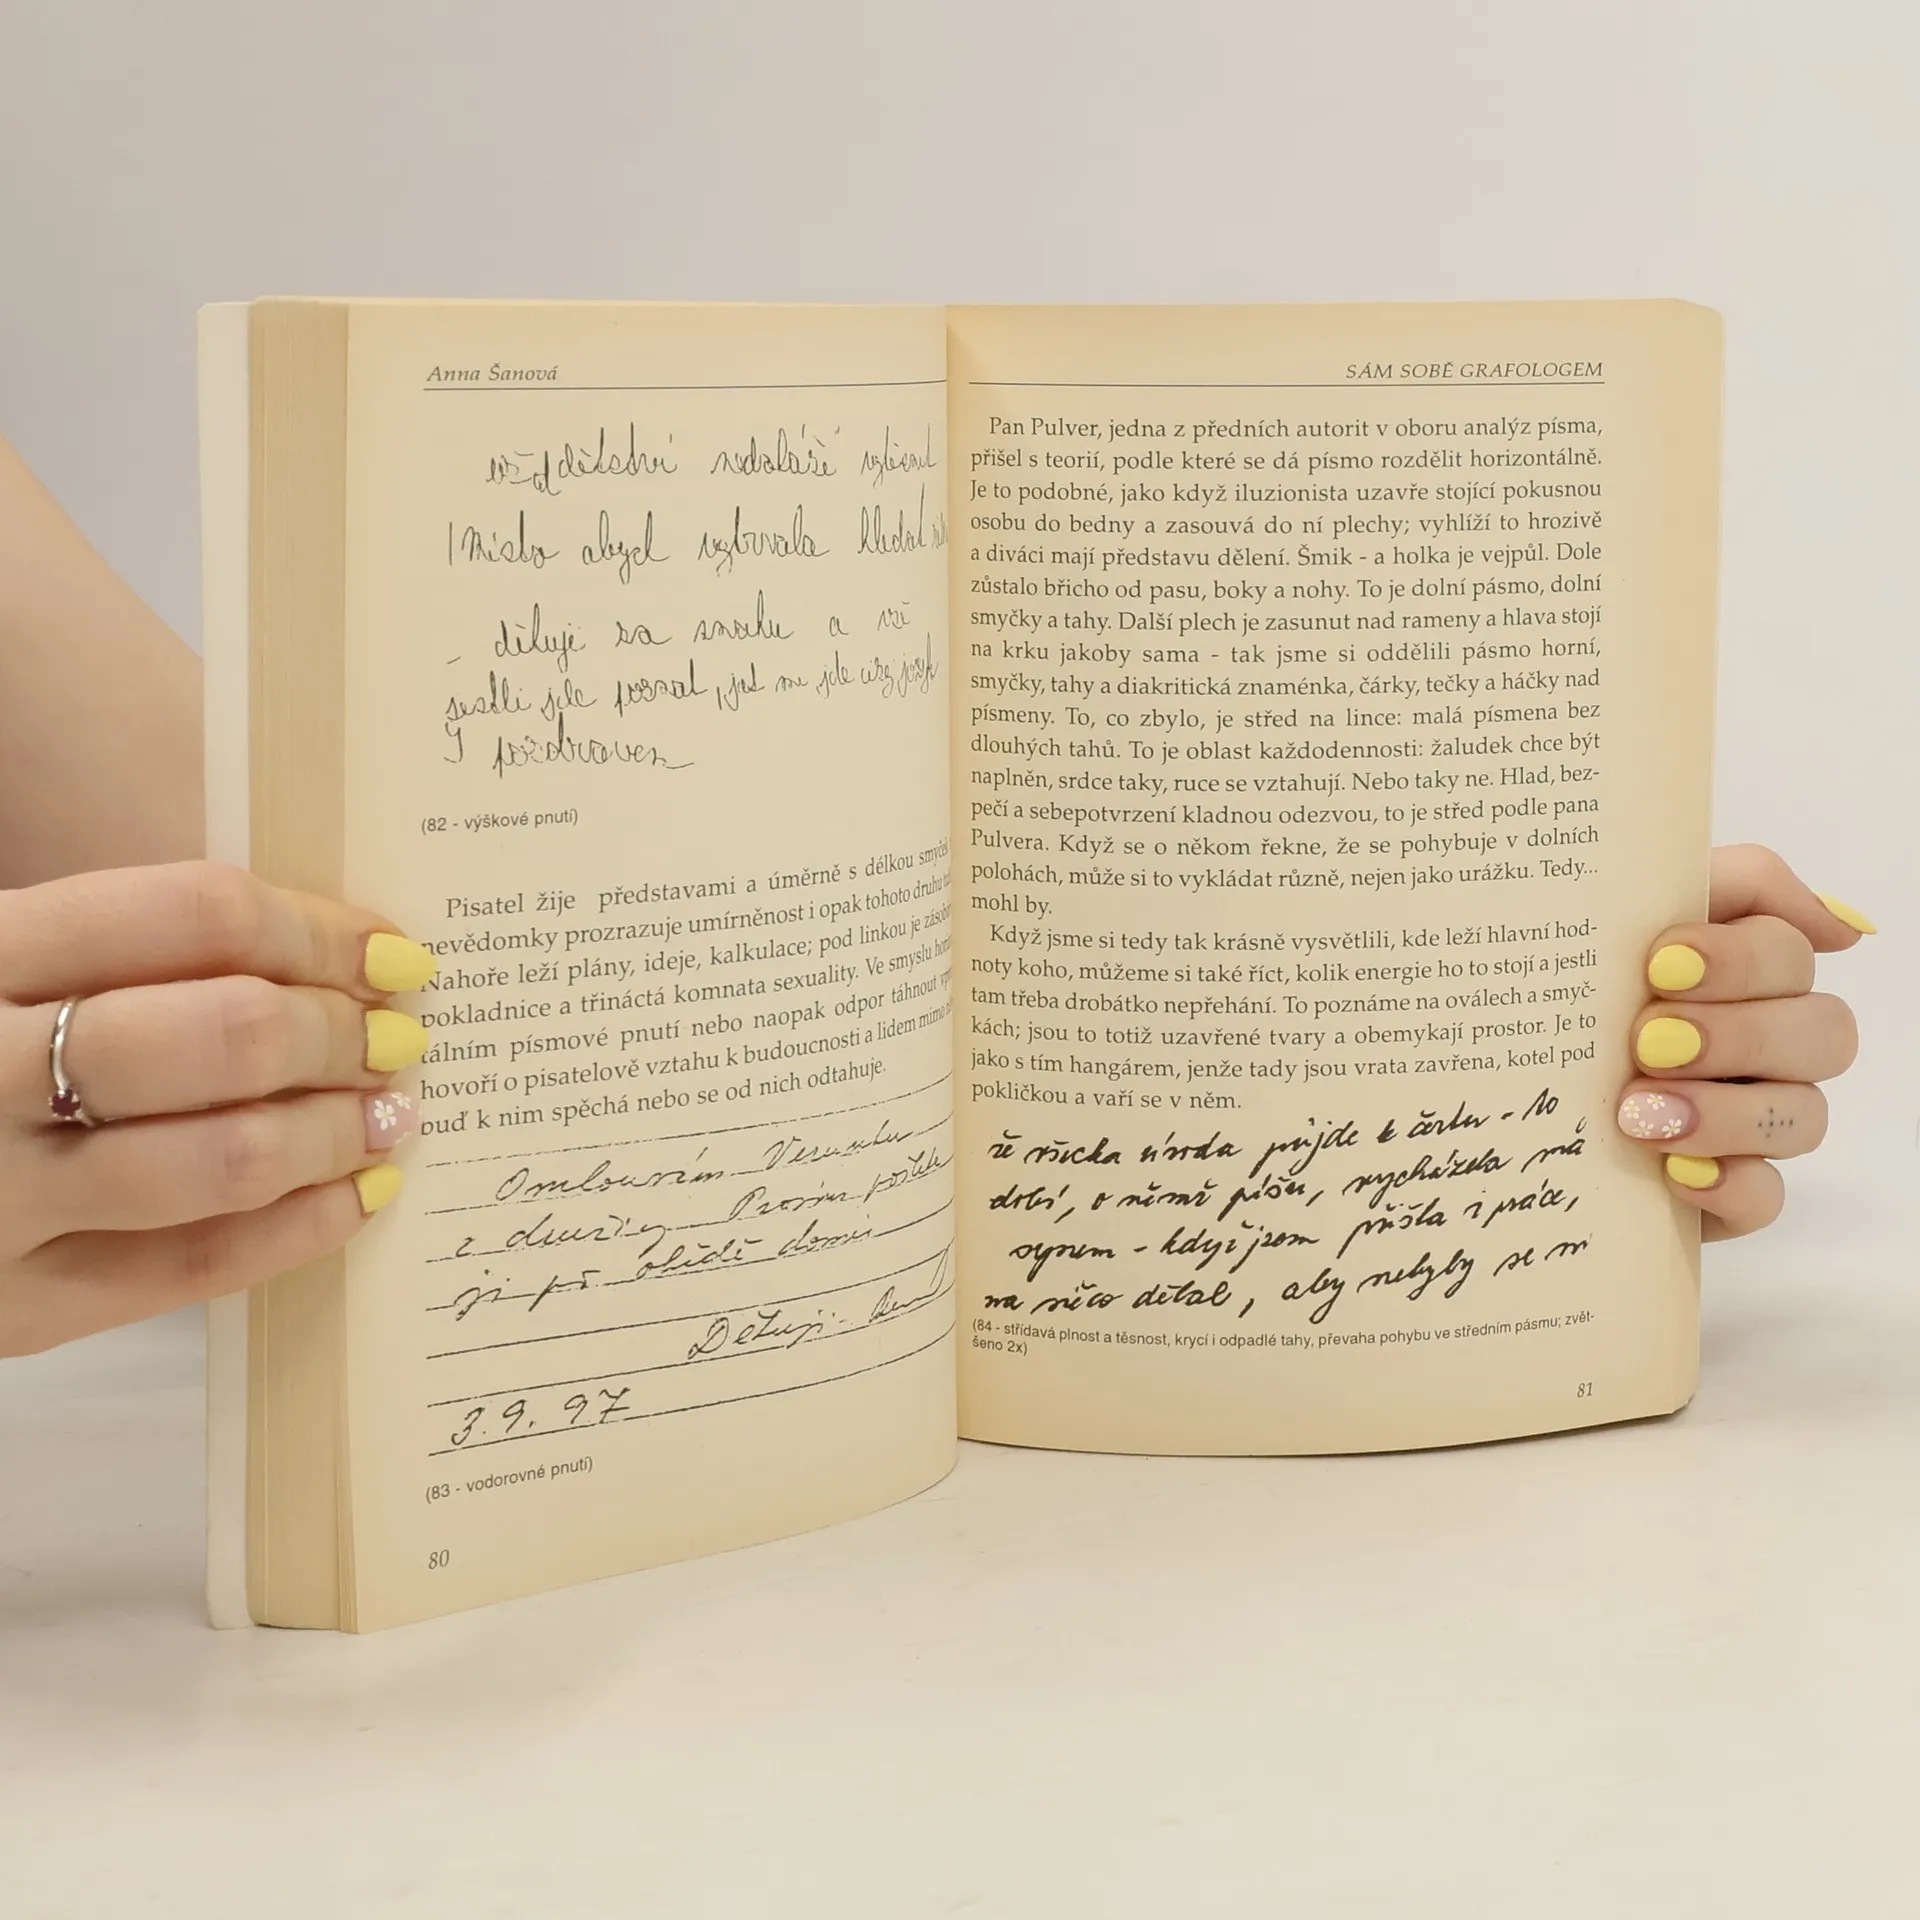 Anna Šanová
dětství nedokáže
Místo abych vytrvala hledat
- děkuji za snahu a
jde poznat, jak mi jde cizí jazyk
S pozdravem
(82 - výškové pnutí)
Pisatel žije představami a úměrně s délkou smyček
nevědomky prozrazuje umírněnost i opak tohoto druhu
Nahoře leží plány, ideje, kalkulace; pod linkou je
pokladnice a třináctá komnata sexuality. Ve smyslu
tálním písmové pnutí nebo naopak odpor táhnout
hovoří o pisatelově vztahu k budoucnosti a lidem mimo
buď k nim spěchá nebo se od nich odtahuje.
Omlouvám Veroniku
z družiny. Prosím pošlete
ji po obědě domů
Děkuji.
3. 9. 97
(83 - vodorovné pnutí)
80
SÁM SOBĚ GRAFOLOGEM
Pan Pulver, jedna z předních autorit v oboru analýz písma,
přišel s teorií, podle které se dá písmo rozdělit horizontálně.
Je to podobné, jako když iluzionista uzavře stojící pokusnou
osobu do bedny a zasouvá do ní plechy; vyhlíží to hrozivě
a diváci mají představu dělení. Šmik - a holka je vejpůl. Dole
zůstalo břicho od pasu, boky a nohy. To je dolní pásmo, dolní
smyčky a tahy. Další plech je zasunut nad rameny a hlava stojí
na krku jakoby sama - tak jsme si oddělili pásmo horní,
smyčky, tahy a diakritická znaménka, čárky, tečky a háčky nad
písmeny. To, co zbylo, je střed na lince: malá písmena bez
dlouhých tahů. To je oblast každodennosti: žaludek chce být
naplněn, srdce taky, ruce se vztahují. Nebo taky ne. Hlad, bez-
pečí a sebepotvrzení kladnou odezvou, to je střed podle pana
Pulvera. Když se o někom řekne, že se pohybuje v dolních
polohách, může si to vykládat různě, nejen jako urážku. Tedy...
mohl by.
Když jsme si tedy tak krásně vysvětlili, kde leží hlavní hod-
noty koho, můžeme si také říct, kolik energie ho to stojí a jestli
tam třeba drobátko nepřehání. To poznáme na oválech a smyč-
kách; jsou to totiž uzavřené tvary a obemykají prostor. Je to
jako s tím hangárem, jenže tady jsou vrata zavřena, kotel pod
pokličkou a vaří se v něm.
že všecka úroda půjde k čertu - to
době, o němž píšu, vycházela má
synem - když jsem přišla z práce,
na něco dělal, aby nebyly se m
(84 - střídavá plnost a těsnost, krycí i odpadlé tahy, převaha pohybu ve středním pásmu; zvět-
šeno 2x)
81